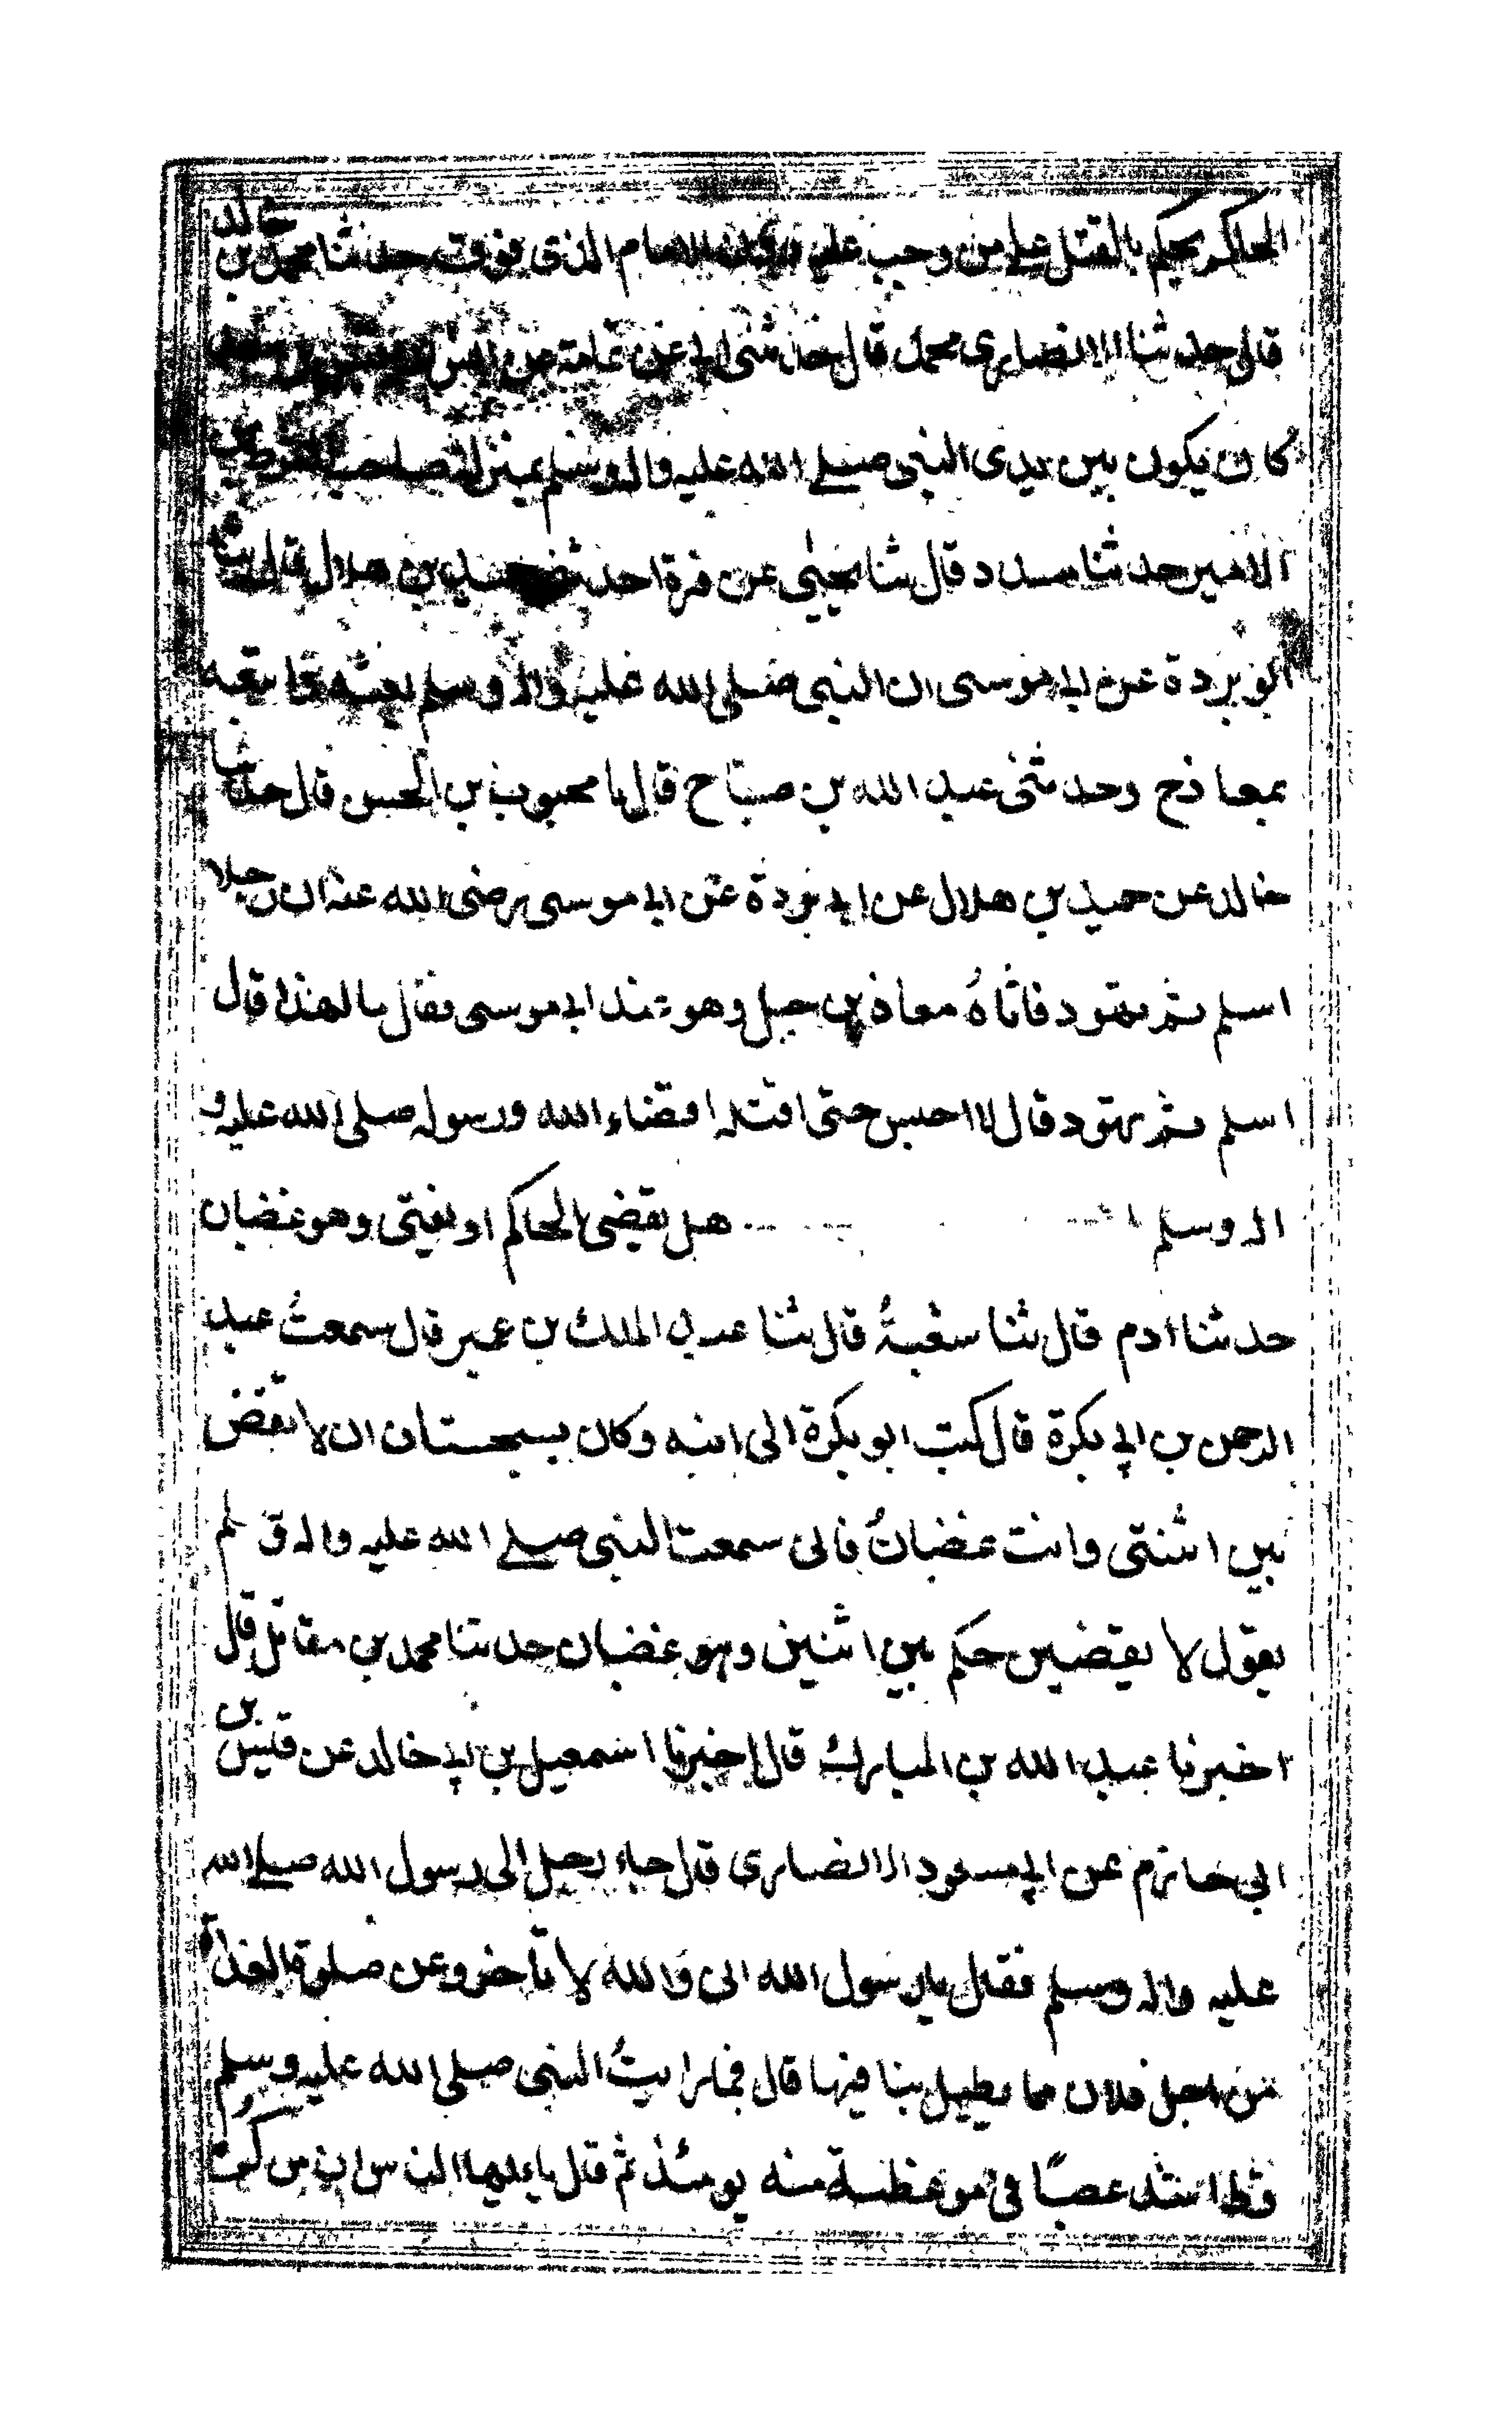 الحاكم يحكم بالقتل على من وجب عليه دون الامام الذى فوقه حدثنا محمد بن خالد
قال حدثنا الانصارى محمد قال حدثنى ابى عن ثمامة عن انس ان قيس بن سعد
كان يكون بين يدى النبى صلى الله عليه واله وسلم بمنزلة صاحب الشرط من
الامير حدثنا مسدد قال ثنا يحيى عن قرة حدثنى حميد بن هلال قال ثنا
ابو بردة عن ابى موسى ان النبى صلى الله عليه واله وسلم بعثه واتبعه
بمعاذ ح وحدثنى عبد الله بن صباح قال نا محبوب بن الحسن قال حدثنا
خالد عن حميد بن هلال عن ابى بردة عن ابى موسى رضى الله عنه ان رجلا
اسلم ثم تهود فاتاه معاذ بن جبل وهو عند ابى موسى فقال ما لهذا قال
اسلم ثم تهود قال لا اجلس حتى اقتله قضاء الله ورسوله صلى الله عليه و
اله وسلم هل يقضى الحاكم او يفتى وهو غضبان
حدثنا ادم قال ثنا شعبة قال ثنا عبد الملك بن عمير قال سمعت عبد
الرحمن بن ابى بكرة قال كتب ابو بكرة الى ابنه وكان بسجستان ان لا تقض
بين اثنتى وانت غضبان فانى سمعت النبى صلى الله عليه واله وسلم
يقول لا يقضين حكم بين اثنين وهو غضبان حدثنا محمد بن مقاتل قال
اخبرنا عبد الله بن المبارك قال اخبرنا اسمعيل بن ابى خالد عن قيس بن
ابى حازم عن ابى مسعود الانصارى قال جاء رجل الى رسول الله صلى الله
عليه واله وسلم فقال يا رسول الله انى والله لا تاخر عن صلوة الغداة
من اجل فلان مما يطيل بنا فيها قال فما رايت النبى صلى الله عليه وسلم
قط اشد غضبا فى موعظة منه يومئذ ثم قال يا ايها الناس ان منكم